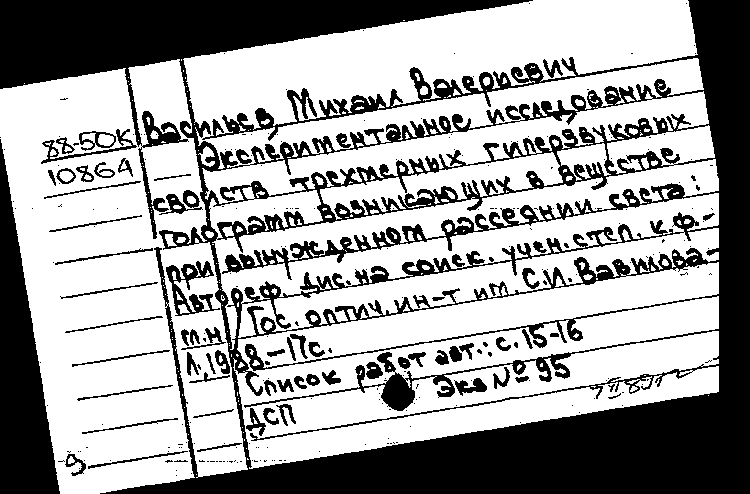 88-50к
10864
Васильев, Михаил Валериевич
Экспериментальное исследование
свойств трехмерных гиперзвуковых
голограмм возникающих в веществе
при вынужденном рассеянии света:
Автореф. дис. на соиск. учен. степ. к.ф.-
м.н / Гос. оптич. ин-т им. С.И. Вавилова-
Л., 1988.-17с.
Список работ авт.: с. 15-16
Экз № 95
ДСП
9